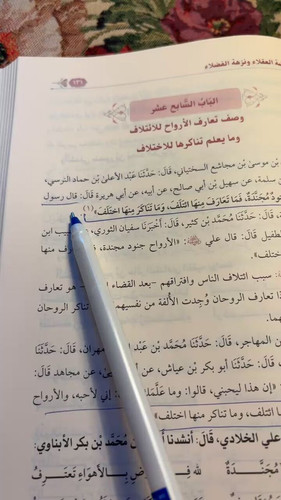 ـة العقلاء ونزهة الفضلاء
١٣١
البَابُ السَّابِعَ عَشَرَ
وصف تعارف الأرواح للائتلاف
وما يعلم تناكرها للاختلاف
بن موسى بن مجاشع السختياني، قال: حَدَّثَنَا عبد الأعلى بْن حماد النرسي،
سلمة، عن سهيل بْن أبي صالح، عن أبيه، عن أبي هريرة قَالَ: قال رسول
ـودٌ مُجَنَّدَةٌ، فَمَا تَعَارَفَ مِنْهَا ائْتَلَفَ، وَمَا تَنَاكَرَ مِنْهَا اخْتَلَفَ» (١)
قَالَ: حَدَّثَنَا مُحَمَّد بْن كثير، قَالَ: أَخْبَرَنَا سفيان الثوري، حبيب ابن
لطفيل قَالَ: قال علي: «الأرواح جنود مجندة، فما منها
ختلف».
: سبب ائتلاف الناس وافتراقهم -بعد القضاء هو تعارف
ذا تعارف الروحان وُجِدت الأُلفة من نفسيهما تناكر الروحان
ـهما.
بن المهاجر، قَالَ: حَدَّثَنَا مُحَمَّد بْن مهران، قَالَ: حَدَّثَنَا
قَالَ: حَدَّثَنَا أبو بكر بْن عياش، عن عن مجاهد قَالَ:
: «إن هذا ليحبني، قالوا: وما إني لأحبه، والأرواح
ا ائتلف، وما تناكر منها اختلف»
علي الخلادي، قَالَ: أنشدنا مُحَمَّد بْن بكر الأبناوي:
مُجَنَّدَةٌ لله بِالأَهوَاءِ تَعتَرِفُ